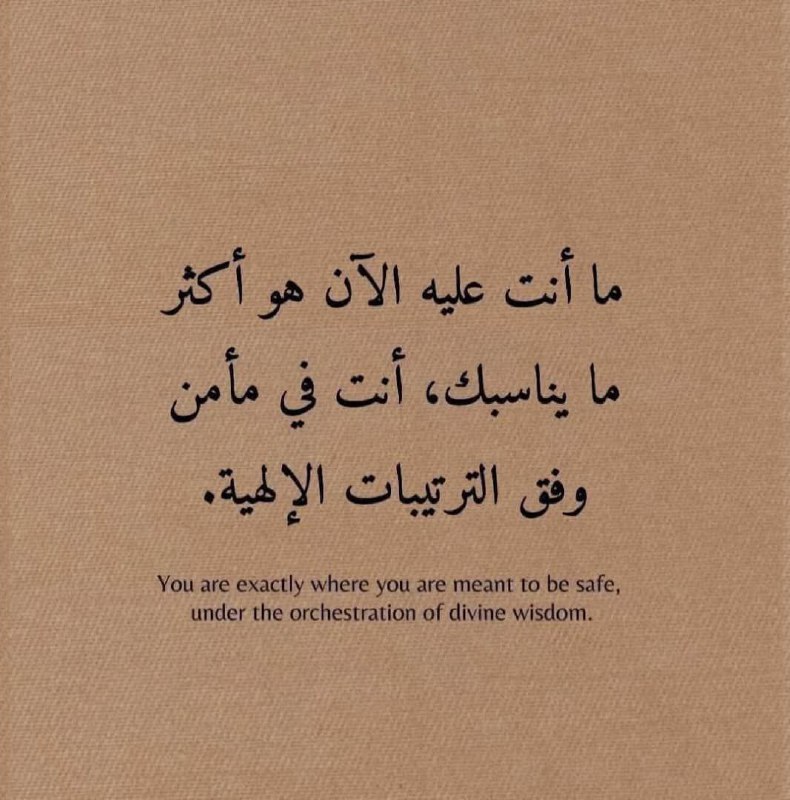 ما أنت عليه الآن هو أكثر
ما يناسبك، أنت في مأمن
وفق الترتيبات الإلهية.
You are exactly where you are meant to be safe,
under the orchestration of divine wisdom.